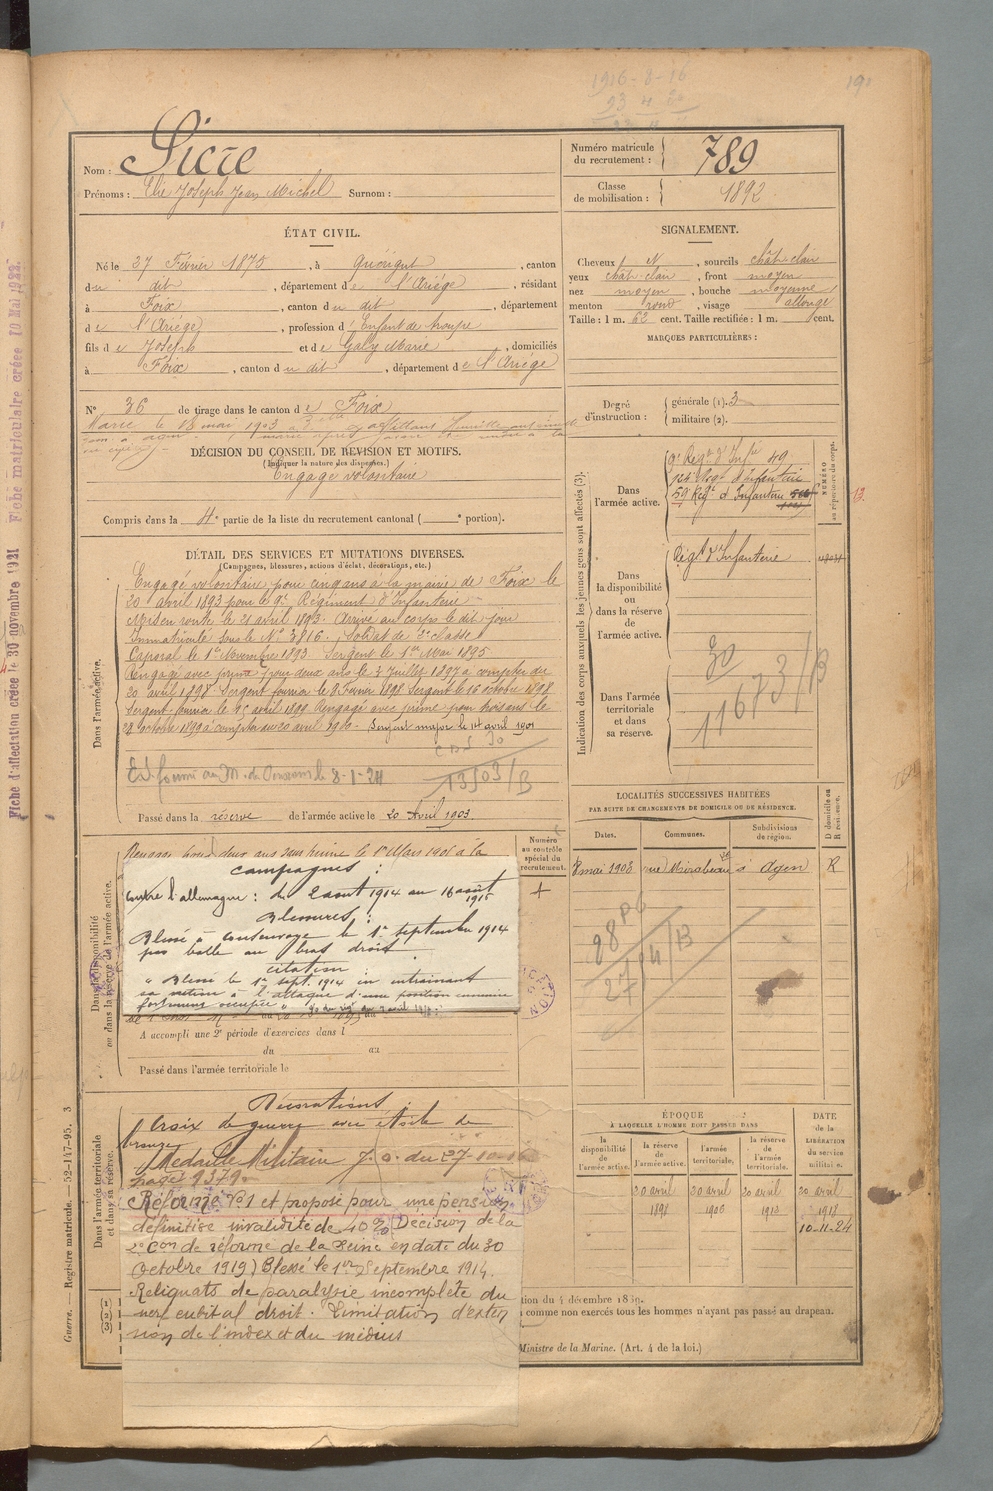 191
1916-8-16
93 4 20
Nom : Sicre
Prénoms : Elie Joseph Jean Michel Surnom :
Numéro matricule du recrutement : 789
Classe de mobilisation : 1892
ÉTAT CIVIL.
Né le 27 Février 1873, à Quérigut, canton
du dit, département de l'Ariège, résidant
à Foix, canton du dit, département
de l'Ariège, profession d'Enfant de troupe
fils de Joseph et de Galy Marie, domiciliés
à Foix, canton du dit, département de l'Ariège
SIGNALEMENT.
Cheveux N, sourcils chât-clair
yeux chât-clair, front moyen
nez moyen, bouche moyenne
menton rond, visage allongé
Taille : 1 m. 62 cent. Taille rectifiée : 1 m. cent.
MARQUES PARTICULIÈRES :
N° 36 de tirage dans le canton de Foix
Marié le 18 mai 1903 à
DÉCISION DU CONSEIL DE REVISION ET MOTIFS.
(Indiquer la nature des dispenses.)
Engagé volontaire
Compris dans la 4e partie de la liste du recrutement cantonal ( e portion).
Degré d'instruction : générale (1). 3
militaire (2).
Indication des corps auxquels les jeunes gens sont affectés (3).
Dans l'armée active.
9e Régt d'Infie 49
125 Régt d'Infanterie
59 Régt d'Infanterie
NUMÉRO au répertoire du corps.
13.
Dans la disponibilité ou dans la réserve de l'armée active.
Régt d'Infanterie
Dans l'armée territoriale et dans sa réserve.
30
11673/B
DÉTAIL DES SERVICES ET MUTATIONS DIVERSES.
(Campagnes, blessures, actions d'éclat, décorations, etc.)
Dans l'armée active.
Engagé volontaire pour cinq ans à la mairie de Foix le
20 avril 1893 pour le 9e Régiment d'Infanterie
Mis en route le 21 avril 1893. Arrivé au corps le dit jour
Immatriculé sous le N° 3816. Soldat de 2e classe
Caporal le 1er Novembre 1893. Sergent le 1er Mai 1895
Rengagé avec prime pour deux ans le 3 Juillet 1897 à compter du
20 avril 1898 Sergent fourrier le 8 Février 1898 Sergent le 16 octobre 1898
Sergent fourrier le avril 1899 Rengagé avec prime pour trois ans le
octobre 1899 à compter du 20 avril 1900 - Sergent major le 14 avril 1901
Ed fourni au M. de Pensions le 3-1-24
13503/B
Passé dans la réserve de l'armée active le 20 Avril 1903.
Dans la disponibilité ou dans la réserve de l'armée active.
Rengagé pour deux ans sans prime le 1er Mars 1901 à la
Campagnes :
contre l'allemagne : du 2 aout 1914 au 16 août 1915
Blessures :
Blessé à contenvoye le 1er septembre 1914
par balle au bras droit
citation
" Blessé le 1er sept. 1914 en entrainant
sa section à l'attaque d'une position ennemie
fortement occupée "
A accompli une 2e période d'exercices dans l
du au
Passé dans l'armée territoriale le
Numéro au contrôle spécial du recrutement.
LOCALITÉS SUCCESSIVES HABITÉES
PAR SUITE DE CHANGEMENTS DE DOMICILE OU DE RÉSIDENCE.
Dates. Communes. Subdivisions de région. D domicile ou R résidence.
8 mai 1903 rue Mirabeau à Agen R
Dans l'armée territoriale et dans sa réserve.
Décorations :
Croix de guerre avec étoile de
bronze
Médaille Militaire J. O. du
page 9379
Réformé N°1 et proposé pour une pension
définitive invalidité de 40% (Décision de la
2e Con de réforme de la Seine en date du 30
Octobre 1919) Blessé le 1er Septembre 1914.
Reliquats de paralysie incomplète du
nerf cubital droit. Limitation d'exten
sion de l'index et du médius
ÉPOQUE
À LAQUELLE L'HOMME DOIT PASSER DANS
la disponibilité de l'armée active. la réserve de l'armée active. l'armée territoriale. la réserve de l'armée territoriale.
DATE de la LIBÉRATION du service militaire.
20 avril 1896 20 avril 1906 20 avril 1912 20 avril 1918
10-11-24
tion du 4 décembre 1889.
comme non exercés tous les hommes n'ayant pas passé au drapeau.
Ministre de la Marine. (Art. 4 de la loi.)
Guerre. — Registre matricule. — 52-147-95. 3
Fiche d'affectation créée le 30 novembre 1921 Fiche matriculaire créée 10 Mai 1922.